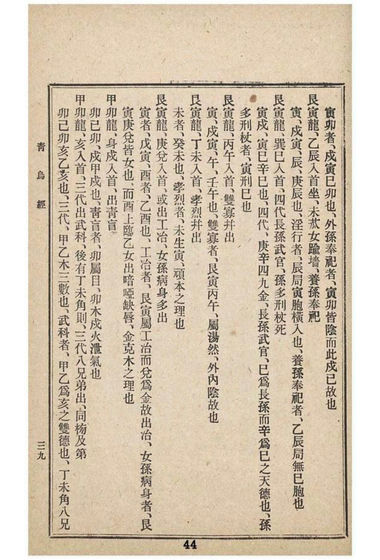 寅卯者、戌寅己卯也、外孫奉祀者、寅卯皆陰而此戌己故也
艮寅龍、乙辰入首坐、未苽女踰墻、養孫奉祀
寅、戌寅、辰、庚辰也、淫行者、辰局寅胞橫入也、養孫奉祀者、乙辰局無巳胞也
艮寅龍、巽巳入首、四代長孫武官、孫多刑杖死
寅戌、寅巳辛巳也、四代、庚辛四九金、長孫武官、巳爲長孫而辛爲巳之天德也、孫
多刑杖者、寅刑巳也
艮寅龍、丙午入首、雙寡幷出
寅、戌寅、午、壬午也、雙寡者、艮寅丙午、屬湯然、外內陰故也
艮寅龍、丁未入首、孝烈幷出
未者、癸未也、孝烈者、未生寅、頑本之理也
艮寅龍、庚兌入首、或出工冶、女孫病身多出
寅者、戌寅、酉者、乙酉也、工冶者、艮寅屬工冶而兌爲金故出冶、女孫病身者、艮
寅庚兌皆女也、而酉上臨乙女出喑啞缺脣、金克木之理也
甲卯龍、身戌入首、出靑盲
卯己卯、戌甲戌也、靑盲者、卯屬目、卯木戌火洩氣也
甲卯龍、亥入首、三代出武科、後有丁未角則三代八兄弟出、同榜及第
卯己卯亥乙亥也、三代、甲乙木三數也、武科者、甲乙爲亥之雙德也、丁未角八兄
靑烏經
三九
44